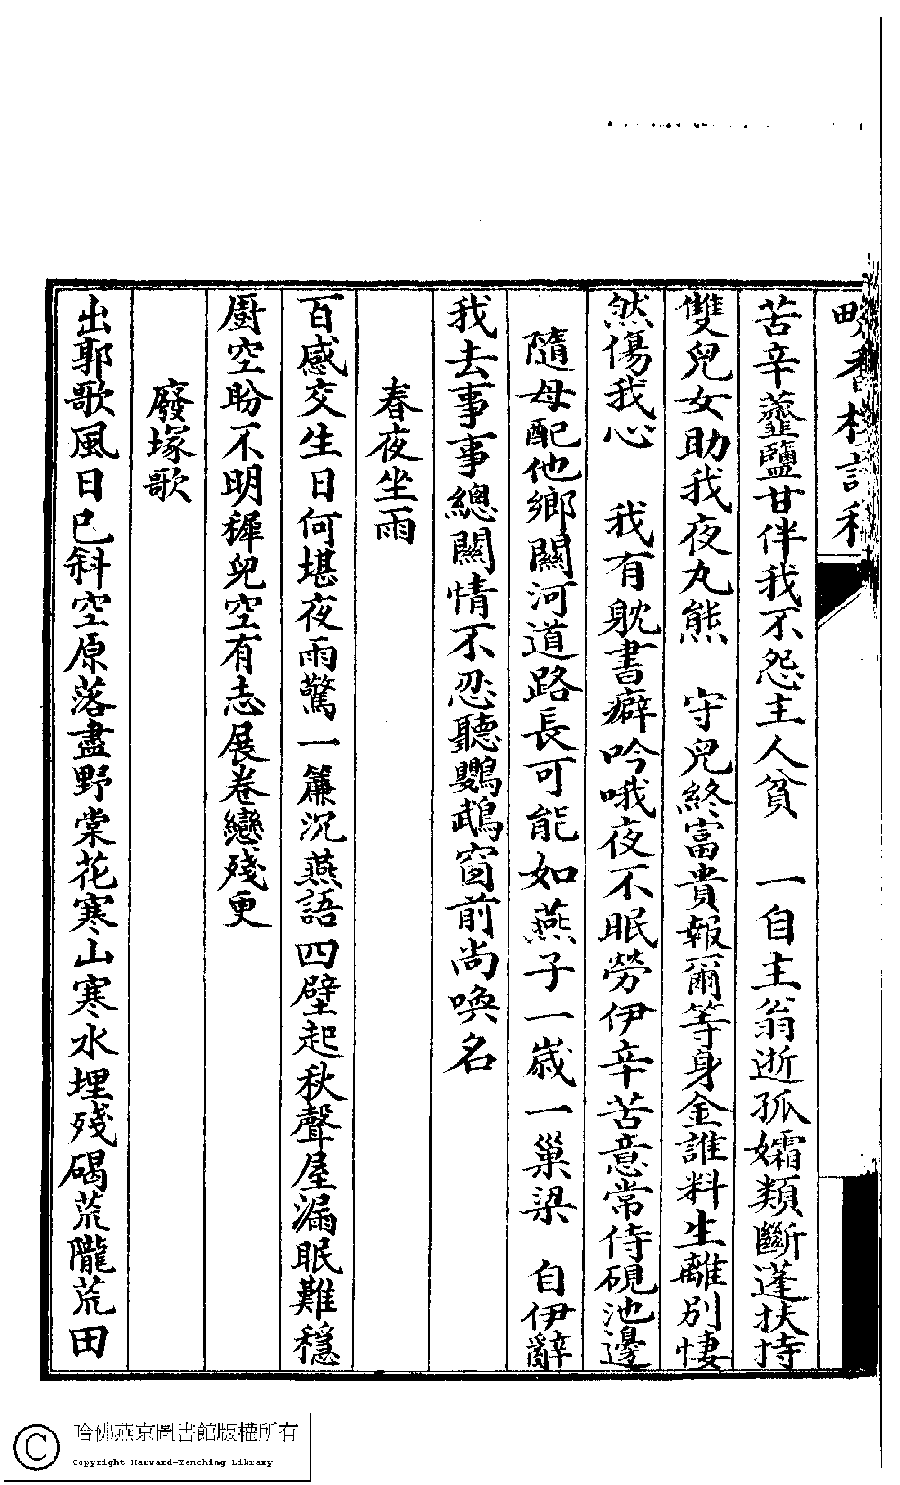 苦辛虀鹽甘伴我不怨主人貧　一自主翁逝孤孀類斷蓬扶持
雙兒女助我夜丸熊　守兒終富貴報爾等身金誰料生離別悽
然傷我心　我有躭書癖吟哦夜不眠勞伊辛苦意常侍硯池邊
隨母配他鄉關河道路長可能如燕子一歲一巢梁　自伊辭
我去事事總關情不忍聽鸚鵡窗前尚喚名
春夜坐雨
百感交生日何堪夜雨驚一簾沉燕語四壁起秋聲屋漏眠難穩
廚空盼不明穉兒空有志展卷戀殘更
廢塚歌
出郭歌風日已斜空原落盡野棠花寒山寒水埋殘碣荒隴荒田
哈佛燕京圖書館版權所有
Copyright Harvard-Yenching Library